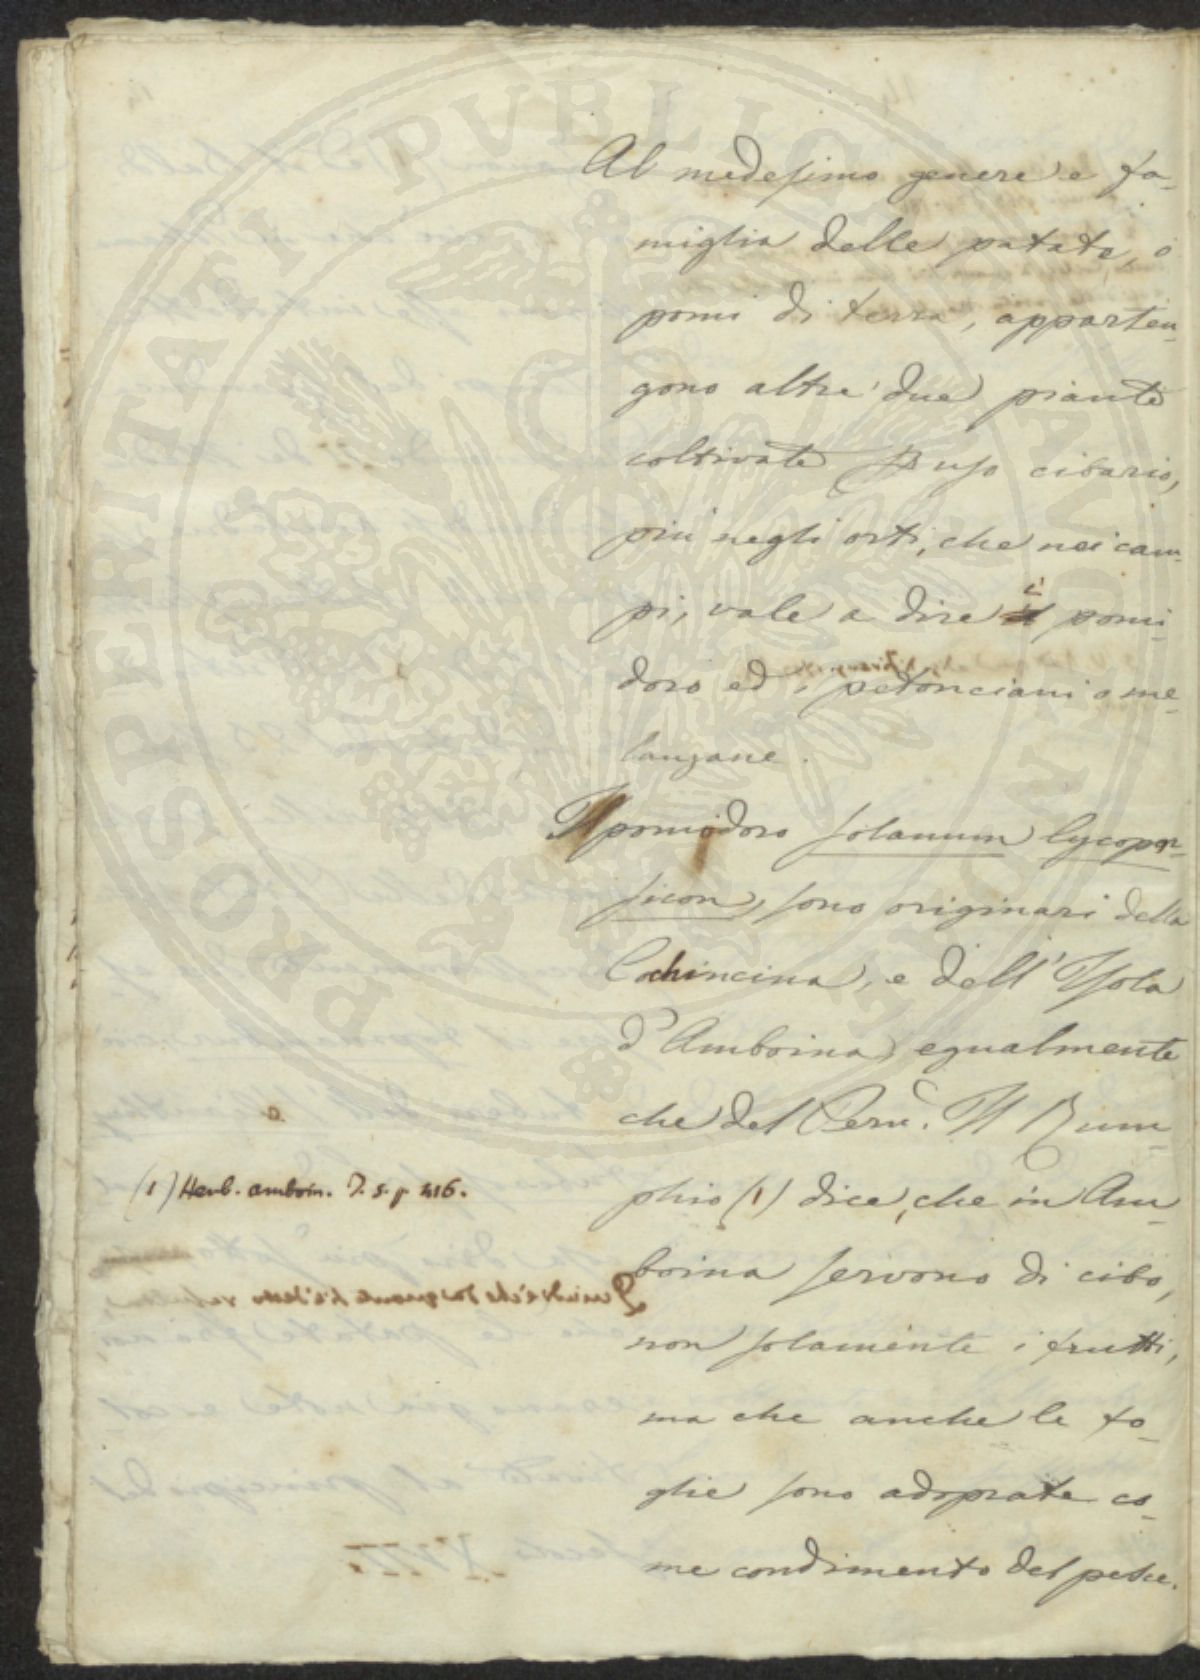 Al medesimo genere e fa-
miglia delle patate, o
pomi di terra, apparten-
gono altre due piante
coltivate p uso cibario,
più negli orti, che nei cam-
pi, vale a dire i pomi-
doro ed i petonciani o me-
lanzane.
Il pomodoro solanum lycoper-
sicon, sono originari della
Cochincina, e dell'Isola
d'Amboina, egualmente
che del Perù. Il Rum-
phio (1) dice, che in Am-
boina servono di cibo,
non solamente i frutti,
ma che anche le fo-
glie sono adoprate co-
me condimento del pesce.
(1) Herb. amboin. T. 5. p. 416.
PROSPERITATI PUBLICAE AUGENDAE